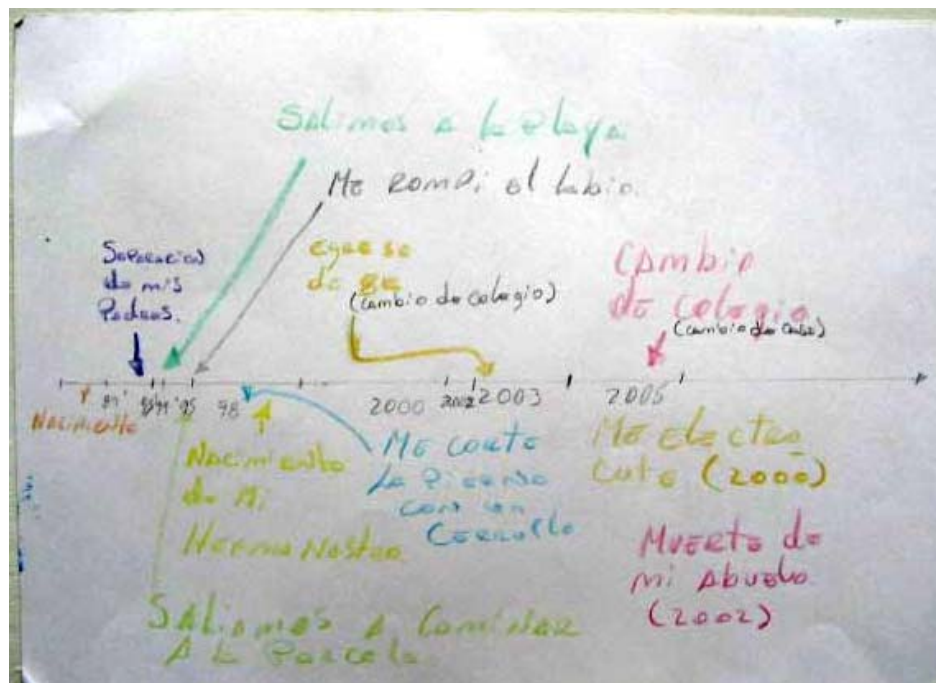 Salimos a la Playa
Me rompi el labio.
Separacion
de mis
Padres.
egreso
de 8º
(cambio de colegio)
Cambio
de colegio
(cambio de casa)
Nacimiento
'95
98
2000
2002
2003
2005
Nacimiento
de mi
Hermanastro
Me corte
la Pierna
con un
Cerrollo
Me electro
cute (2000)
Muerte de
mi Abuelo
(2002)
Saliamos a Caminar
A la Parcela